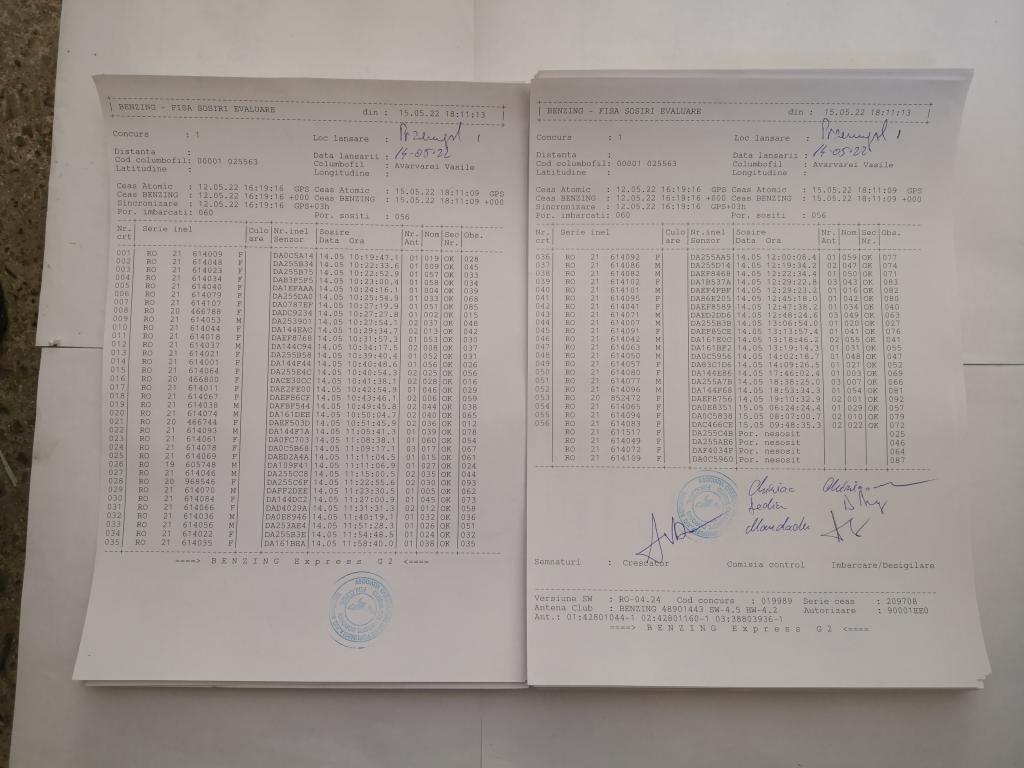 BENZING - FISA SOSIRI EVALUARE din : 15.05.22 18:11:13
Concurs : 1 Loc lansare : Przemysl 1
Distanta : Data lansarii : 14-05-22
Cod columbofil: 00001 025563 Columbofil : Avarvarei Vasile
Latitudine : Longitudine :
Ceas Atomic : 12.05.22 16:19:16 GPS Ceas Atomic : 15.05.22 18:11:09 GPS
Ceas BENZING : 12.05.22 16:19:16 +000 Ceas BENZING : 15.05.22 18:11:09 +000
Sincronizare : 12.05.22 16:19:16 GPS+03h
Por. imbarcati: 060 Por. sositi : 056
Nr. Serie inel Culo Nr.inel Sosire Nr. Nom Sec Obs.
crt are Senzor Data Ora Ant Nr.
001 RO 21 614009 F DA0C5A14 14.05 10:19:47.1 01 019 OK 028
002 RO 21 614048 F DA255B34 14.05 10:22:33.6 01 009 OK 045
003 RO 21 614023 F DA255B75 14.05 10:22:52.9 01 057 OK 033
004 RO 21 614034 F DAB3F5F5 14.05 10:23:00.4 01 058 OK 034
005 RO 21 614040 F DA1EFAAA 14.05 10:24:16.1 01 004 OK 039
006 RO 21 614079 F DA255DA0 14.05 10:25:54.9 01 033 OK 068
007 RO 21 614107 F DA0787EF 14.05 10:27:19.9 01 051 OK 085
008 RO 20 466788 F DADC9234 14.05 10:27:27.8 01 002 OK 015
009 RO 21 614053 M DA253901 14.05 10:27:54.1 02 037 OK 048
010 RO 21 614044 F DA144EAC 14.05 10:29:34.7 02 013 OK 042
011 RO 21 614018 F DAEF8768 14.05 10:31:57.3 01 053 OK 030
012 RO 21 614037 M DA144C94 14.05 10:34:17.5 02 008 OK 037
013 RO 21 614021 F DA255B58 14.05 10:39:40.4 01 052 OK 031
014 RO 21 614001 F DA144F44 14.05 10:40:48.6 01 056 OK 026
015 RO 21 614064 F DA255E6C 14.05 10:40:54.3 02 025 OK 056
016 RO 20 466800 F DACE30CC 14.05 10:41:38.1 02 028 OK 016
017 RO 21 614011 F DAE2FE00 14.05 10:42:54.9 01 046 OK 029
018 RO 21 614067 F DAEF86CF 14.05 10:43:46.1 02 006 OK 059
019 RO 21 614038 M DAFBF544 14.05 10:49:45.8 02 044 OK 038
020 RO 21 614074 M DA161DE5 14.05 10:50:04.7 02 040 OK 065
021 RO 20 466744 F DAEF503D 14.05 10:51:45.9 02 036 OK 012
022 RO 21 614093 M DA144F1A 14.05 11:05:41.3 01 039 OK 078
023 RO 21 614061 F DA0FC703 14.05 11:08:38.1 01 060 OK 054
024 RO 21 614078 F DA0C5B68 14.05 11:09:17.1 03 017 OK 067
025 RO 21 614069 F DAED2A4A 14.05 11:11:04.5 01 015 OK 061
026 RO 19 605748 M DA109F41 14.05 11:11:06.9 01 027 OK 024
027 RO 21 614046 M DA255CC8 14.05 11:15:00.5 02 035 OK 044
028 RO 20 968546 F DA255C6F 14.05 11:22:55.6 02 030 OK 093
029 RO 21 614070 M DAFF2DEE 14.05 11:23:30.5 01 005 OK 062
030 RO 21 614084 F DA144DC2 14.05 11:27:00.9 01 045 OK 073
031 RO 21 614066 F DAD4029A 14.05 11:31:31.3 02 012 OK 058
032 RO 21 614036 M DA0E8946 14.05 11:40:19.1 01 032 OK 036
033 RO 21 614056 M DA253AE4 14.05 11:51:28.3 01 026 OK 051
034 RO 21 614022 F DA255B3E 14.05 11:54:48.5 01 024 OK 032
035 RO 21 614035 F DA161BEA 14.05 11:58:40.0 01 038 OK 035
====> B E N Z I N G E x p r e s s G 2 <====
BENZING - FISA SOSIRI EVALUARE din : 15.05.22 18:11:13
Concurs : 1 Loc lansare : Przemysl 1
Distanta : Data lansarii : 14-05-22
Cod columbofil: 00001 025563 Columbofil : Avarvarei Vasile
Latitudine : Longitudine :
Ceas Atomic : 12.05.22 16:19:16 GPS Ceas Atomic : 15.05.22 18:11:09 GPS
Ceas BENZING : 12.05.22 16:19:16 +000 Ceas BENZING : 15.05.22 18:11:09 +000
Sincronizare : 12.05.22 16:19:16 GPS+03h
Por. imbarcati: 060 Por. sositi : 056
Nr. Serie inel Culo Nr.inel Sosire Nr. Nom Sec Obs.
crt are Senzor Data Ora Ant Nr.
036 RO 21 614092 F DA255AA5 14.05 12:00:08.4 01 059 OK 077
037 RO 21 614086 M DA255D14 14.05 12:19:34.2 02 047 OK 074
038 RO 21 614082 M DAEF8468 14.05 12:22:34.4 01 050 OK 071
039 RO 21 614102 F DA1B537A 14.05 12:29:22.8 03 043 OK 083
040 RO 21 614101 M DAEF4FBF 14.05 12:29:23.2 01 016 OK 082
041 RO 21 614095 F DA86E205 14.05 12:45:18.0 01 042 OK 080
042 RO 21 614041 F DAEF8589 14.05 12:47:38.2 01 034 OK 040
043 RO 21 614071 M DAED2DD6 14.05 12:48:24.6 03 049 OK 063
044 RO 21 614007 M DA255B3B 14.05 13:06:54.0 01 020 OK 027
045 RO 21 614091 F DAEF85CE 14.05 13:13:57.4 01 041 OK 076
046 RO 21 614042 M DA161E0C 14.05 13:18:46.2 02 055 OK 041
047 RO 21 614063 M DA161BF2 14.05 13:19:14.3 01 031 OK 055
048 RO 21 614050 M DA0C5956 14.05 14:02:18.7 01 048 OK 047
049 RO 21 614057 F DA83C1D6 14.05 14:09:26.5 01 021 OK 052
050 RO 21 614080 F DA144E86 14.05 17:46:02.4 01 003 OK 069
051 RO 21 614077 M DA255A7B 14.05 18:38:25.0 03 007 OK 066
052 RO 21 614096 M DA144F68 14.05 18:53:34.3 01 054 OK 081
053 RO 20 852472 F DAEF8756 14.05 19:10:32.9 02 001 OK 092
054 RO 21 614065 F DA0E8351 15.05 06:24:24.4 01 029 OK 057
055 RO 21 614094 F DA0C5838 15.05 08:07:00.7 02 010 OK 079
056 RO 21 614083 F DAC466CE 15.05 09:48:35.3 02 022 OK 072
RO 21 611517 F DA255C4B Por. nesosit 025
RO 21 614049 F DA255AE6 Por. nesosit 046
RO 21 614072 F DAF4034F Por. nesosit 064
RO 21 614109 F DA0C5960 Por. nesosit 087
Semnaturi : Crescator Comisia control Imbarcare/Desigilare
Versiune SW : RO-04.24 Cod concurs : 019989 Serie ceas : 209708
Antena Club : BENZING 48901443 SW-4.5 HW-4.2 Autorizare : 90001EE0
Ant.: 01:42801044-1 02:42801160-1 03:38803936-1
====> B E N Z I N G E x p r e s s G 2 <====